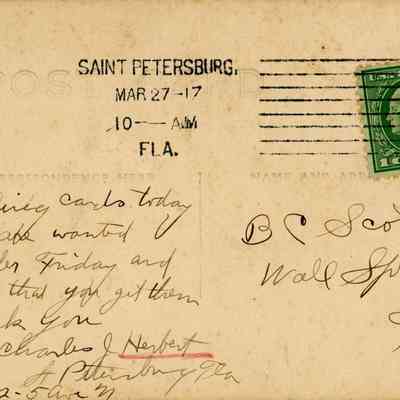 POST
SAINT PETERSBURG,
MAR 27-17
10 — AM
FLA.
CORRESPONDENCE HERE
NAME AND ADD
cards today
wanted
Friday and
that you get them
you
Charles J Herbert
St Petersburg Fla
2-5 Ave N
B C Sco
Wall Sp